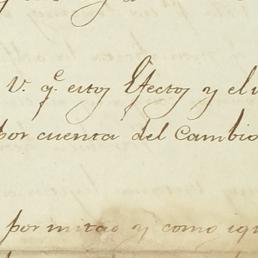 V. q.e estos Efectos y el
por cuenta del Cambio
por mitad y como igu